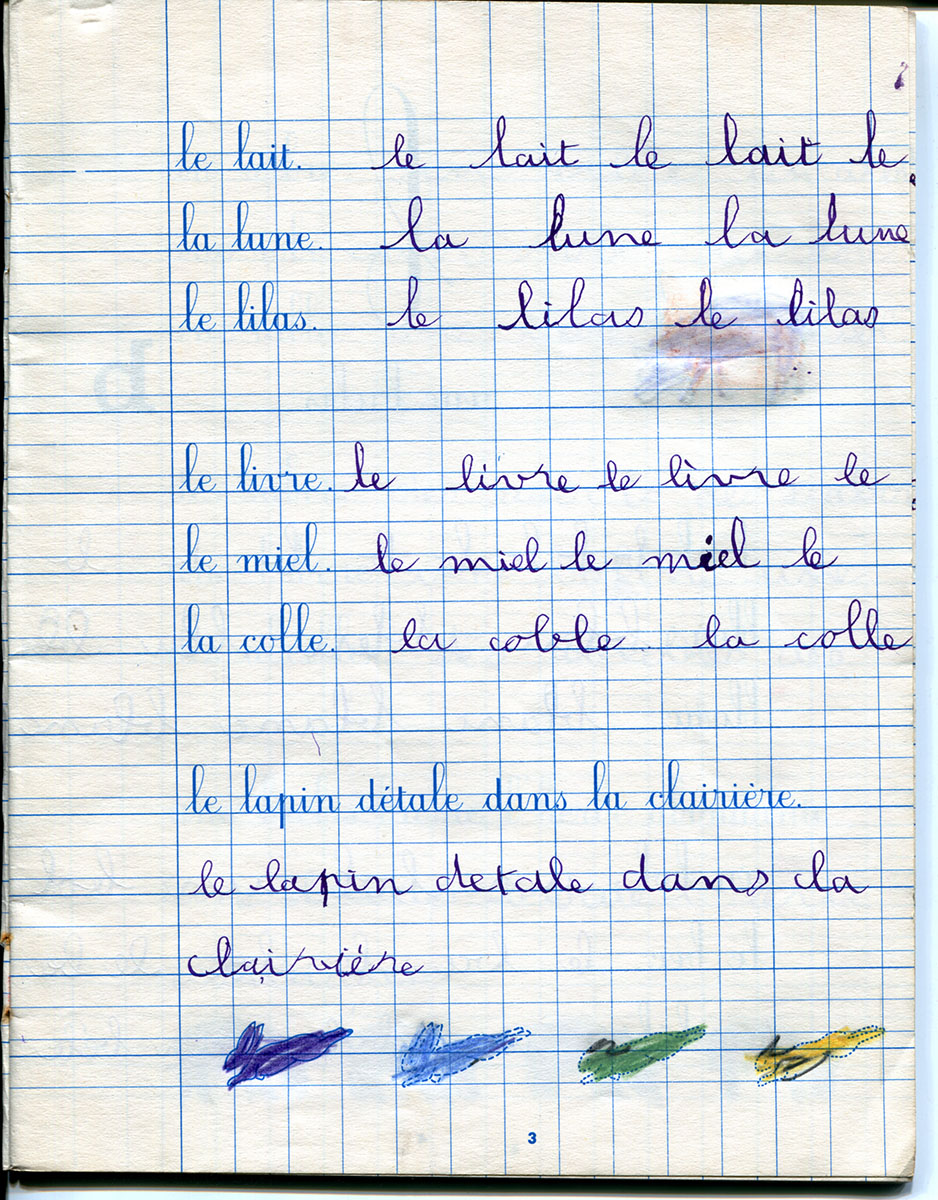 le lait. le lait le lait le
la lune. la lune la lune
le lilas. le lilas le lilas
le livre. le livre le livre le
le miel. le miel le miel le
la colle. la coble . la colle
le lapin détale dans la clairière.
le lapin detale dans cla
clairière
3